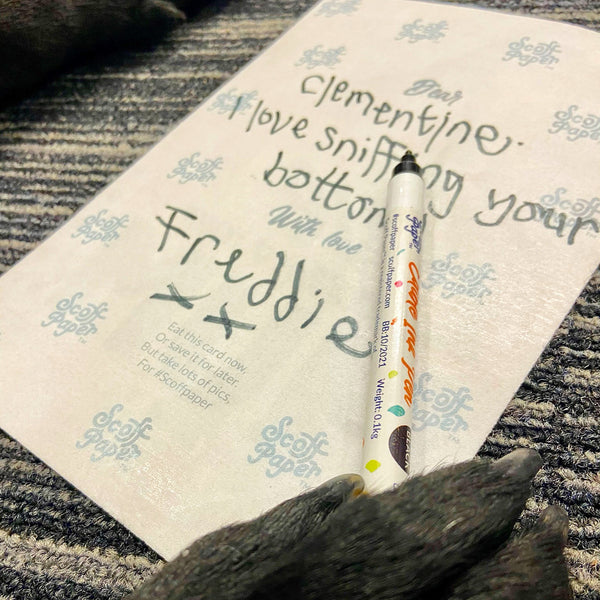 Scoff
Paper
Scoff
Paper
Scoff
Paper
Dear
Clementine.
I love sniffing your
bottom
With love
Freddie
xx
Scoff
Paper
Scoff
Paper
Scoff
Paper
Scoff
Paper
Scoff
Paper
Scoff
Paper
Scoff
Paper
Eat this card now,
Or save it for later.
But take lots of pics,
For #Scoffpaper
Paper
#scoffpaper scoffpaper.com
BB:10/2021
Weight: 0.1kg